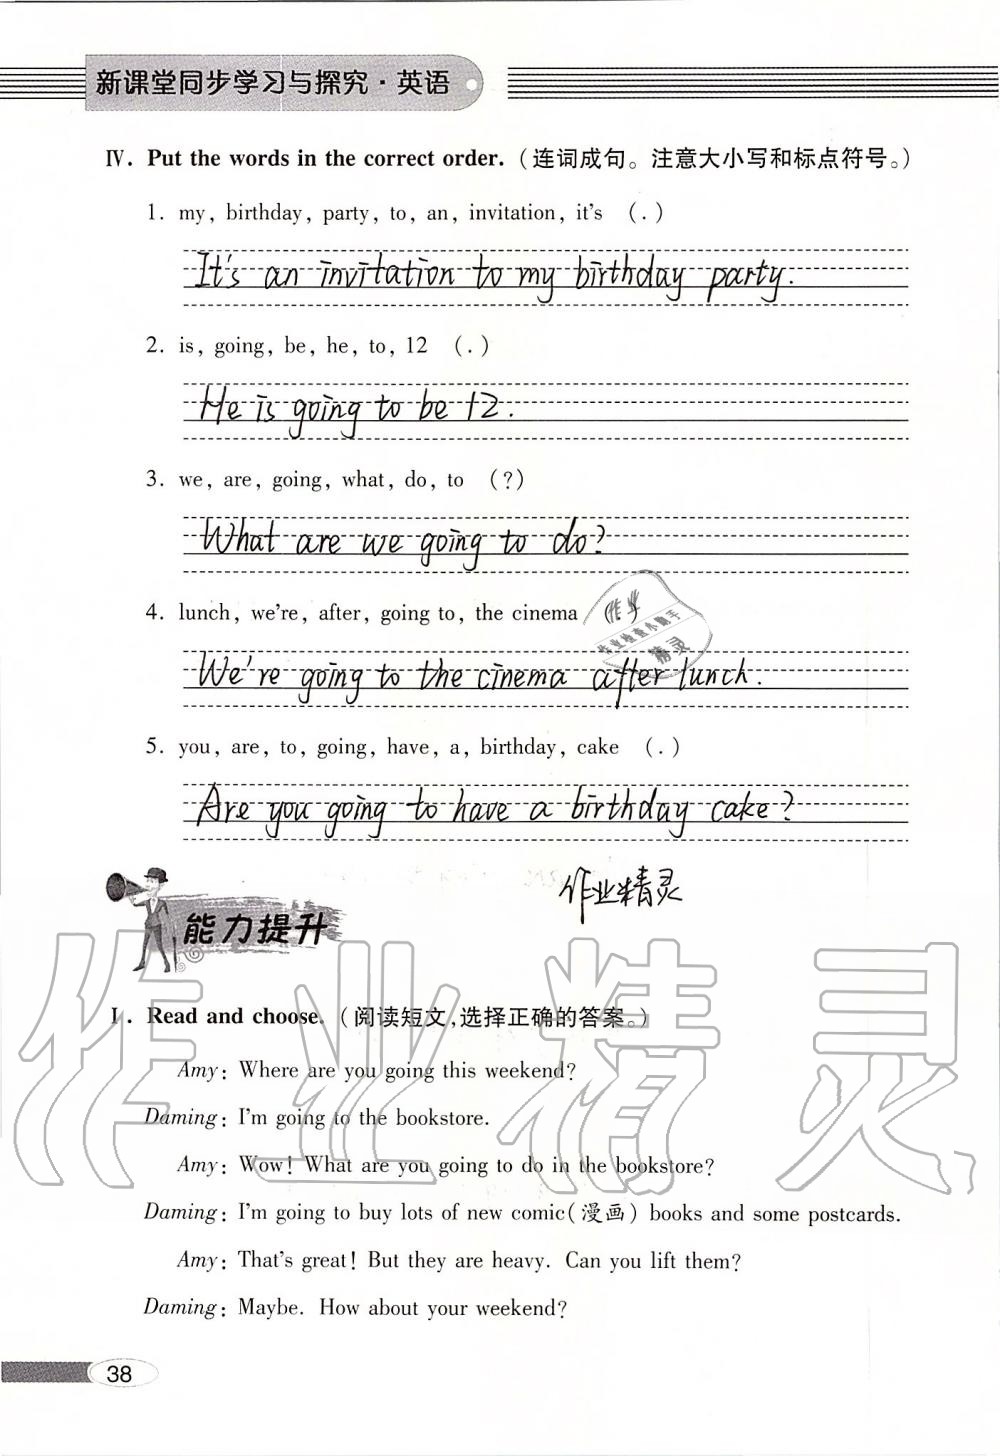 新课堂同步学习与探究·英语
Ⅳ. Put the words in the correct order.(连词成句。注意大小写和标点符号。)
1. my, birthday, party, to, an, invitation, it's (.)
It's an invitation to my birthday party.
2. is, going, be, he, to, 12 (.)
He is going to be 12.
3. we, are, going, what, do, to (?)
What are we going to do?
4. lunch, we're, after, going to, the cinema
作业
作业检查小助手
精灵
We're going to the cinema after lunch.
5. you, are, to, going, have, a, birthday, cake (.)
Are you going to have a birthday cake?
作业精灵
能力提升
作业精灵
Ⅰ. Read and choose.(阅读短文,选择正确的答案。)
Amy: Where are you going this weekend?
Daming: I'm going to the bookstore.
Amy: Wow! What are you going to do in the bookstore?
Daming: I'm going to buy lots of new comic(漫画) books and some postcards.
Amy: That's great! But they are heavy. Can you lift them?
Daming: Maybe. How about your weekend?
38